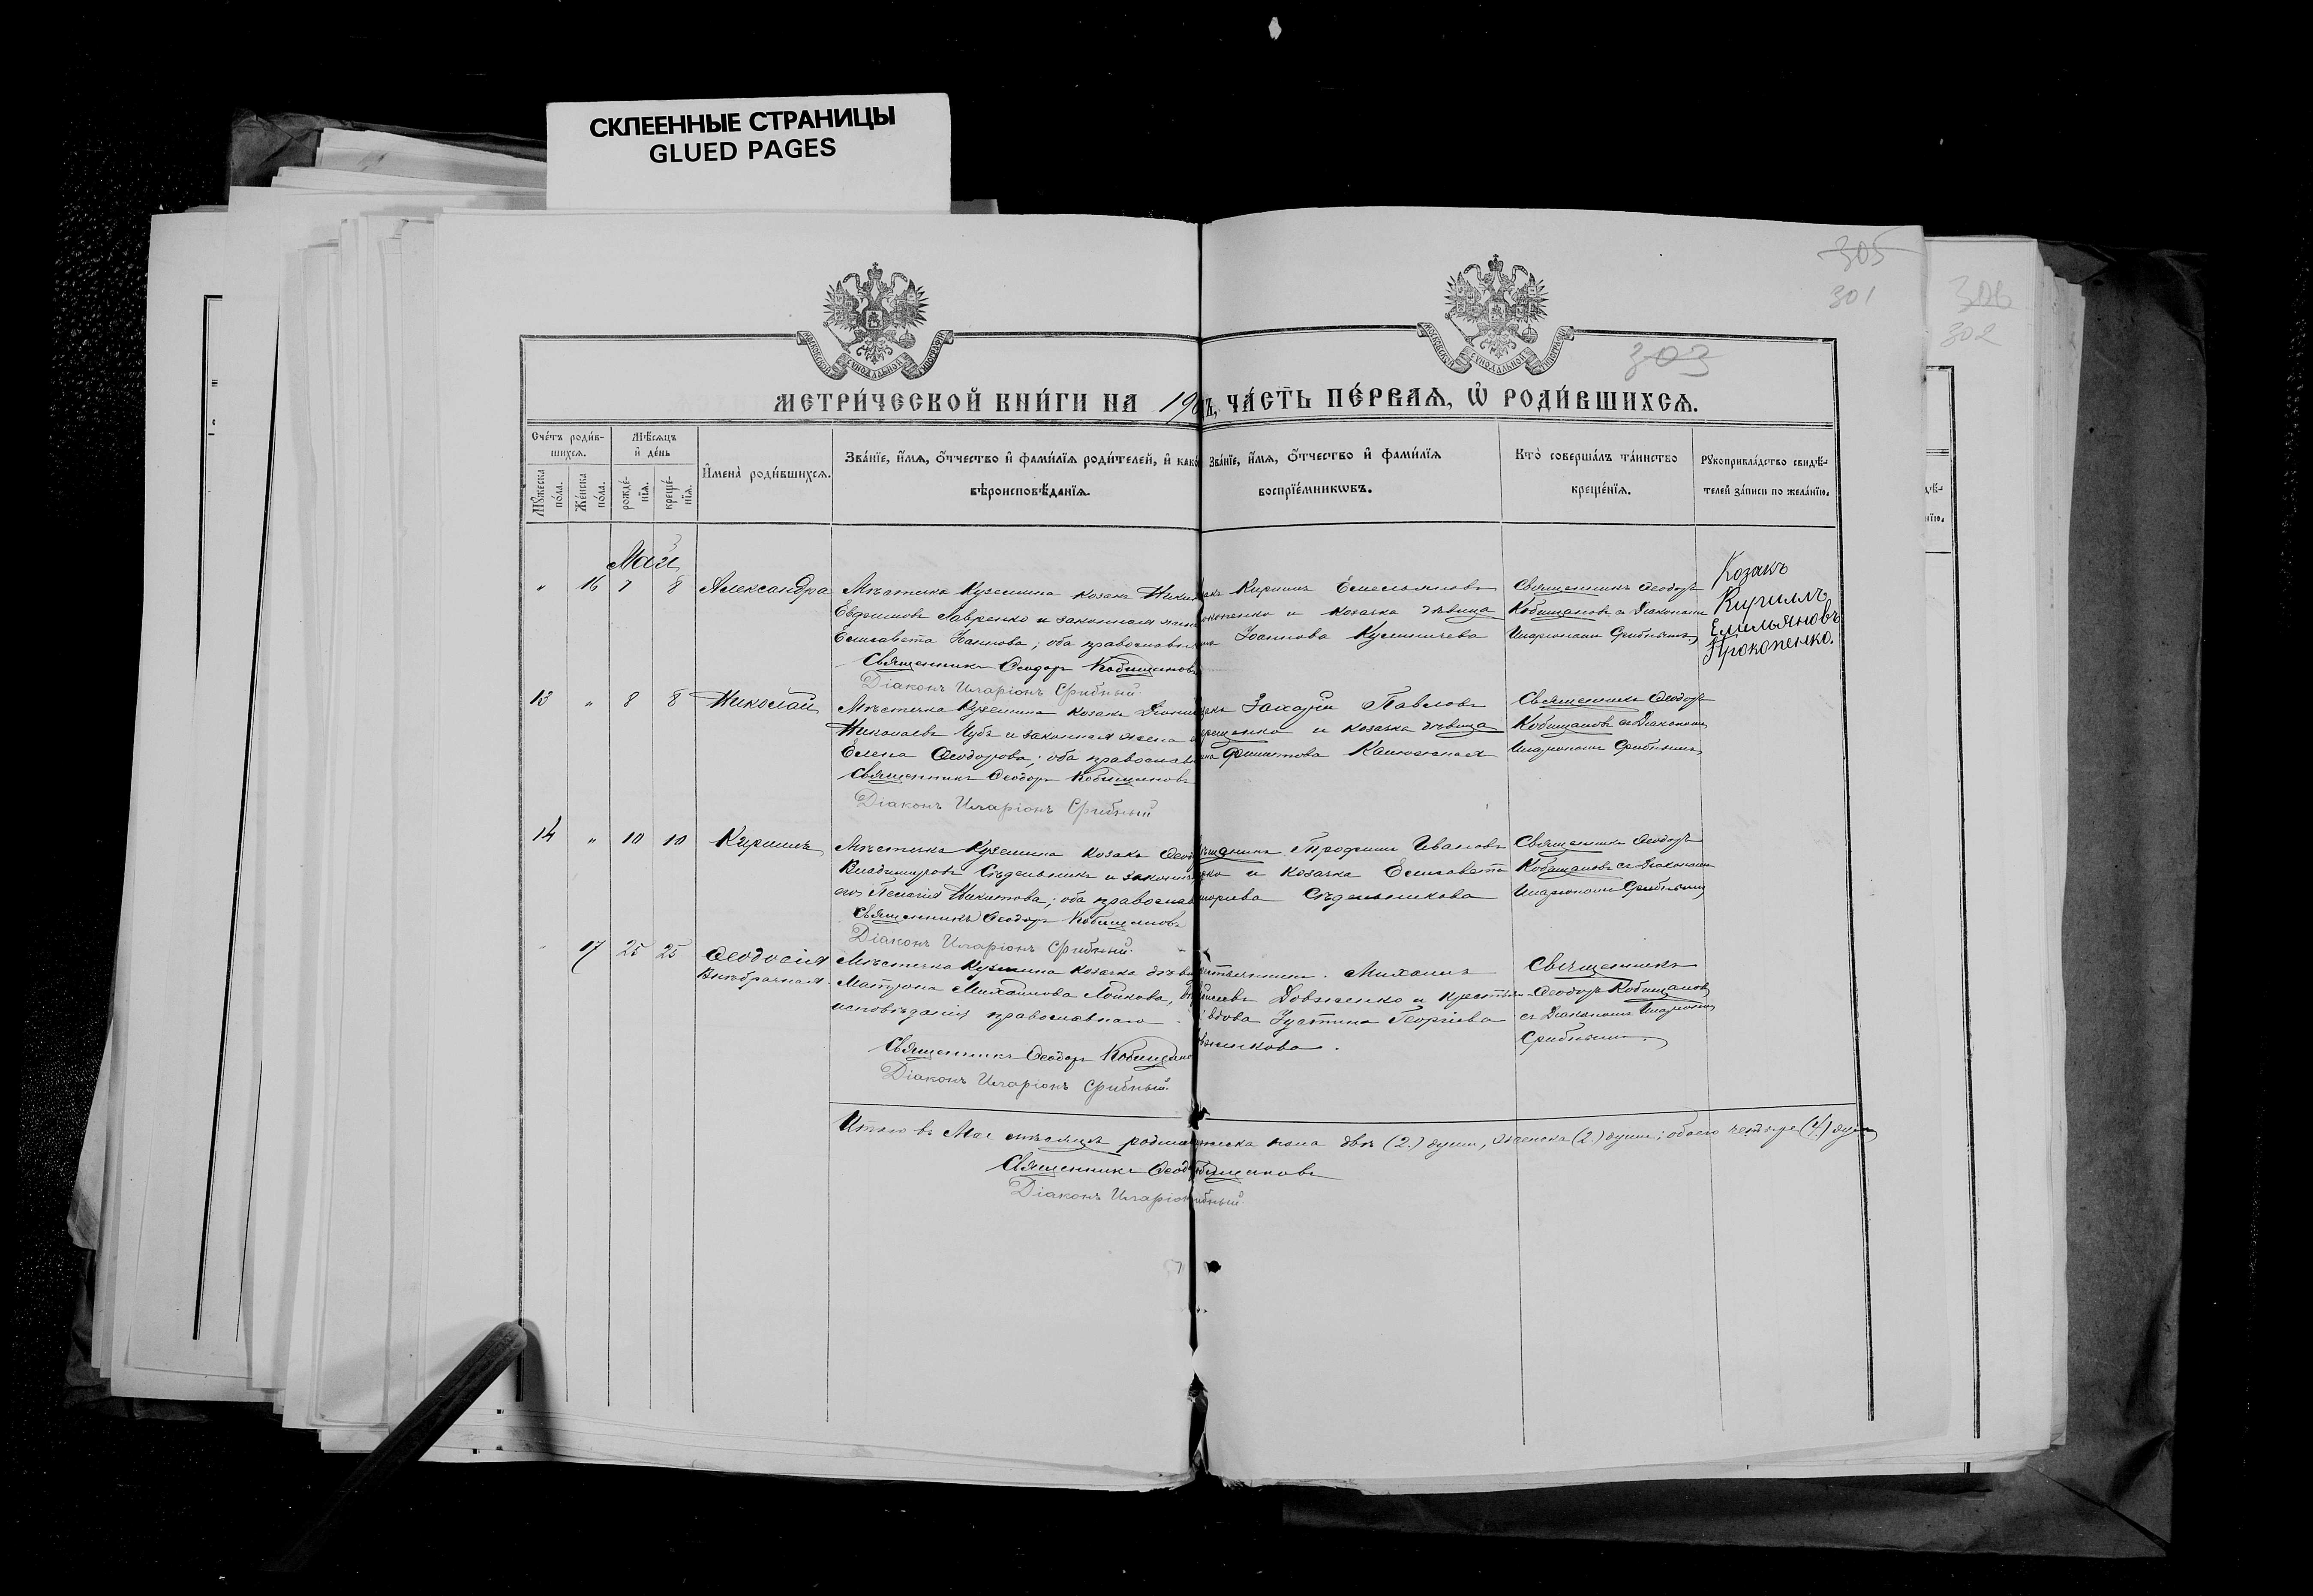 СКЛЕЕННЫЕ СТРАНИЦЫ
GLUED PAGES
305
301
306
302
303
МЕТРИ́ЧЕСКОЙ КНИ́ГИ НА 190
Ъ, ЧА́СТЬ ПЕ́РВАѦ, Ѿ РОДИ́ВШИХСѦ.
Сче́тъ роди́в-
шихсѧ.
Мѣ́сѧцъ
и де́нь
Мꙋ́жеска по́ла.
Же́нска по́ла.
рожде́-
нїѧ.
креще́-
нїѧ.
Имена̀ роди́вшихсѧ.
Зва́нїе, и́мѧ, ѻ́тчество и фами́лїѧ роди́телей, и како
вѣроисповѣ́данїѧ.
Зва́нїе, и́мѧ, ѻ́тчество и фами́лїѧ
воспрїе́мникωвъ.
Кто̀ соверша́лъ та́инство
креще́нїѧ.
Рꙋкоприкла́дство свидѣ́-
телей за́писи по жела́нїю.
Май
" 16 7 8 Александра
Мѣстечка Куземина козакъ Ники
Евфимовъ Лавренко и законная жена
Елисавета Іоаннова; оба православные
Священникъ Ѳеодоръ Кобищановъ
Діаконъ Иларіонъ Срибный.
Кириллъ Емельяновъ
и козачка дѣвица
Іоаннова
Священникъ Ѳеодоръ
Кобищановъ съ Діакономъ
Иларіономъ Срибнымъ
Козакъ
Кириллъ
Емельяновъ
Прокопенко.
13 " 8 8 Николай
Мѣстечка Куземина козакъ Діони
Николаевъ Чубъ и законная жена
Елена Ѳеодорова; оба православ
Священникъ Ѳеодоръ Кобищановъ
Діаконъ Иларіонъ Срибный
Захарій Павловъ
и козачка дѣвица
Священникъ Ѳеодоръ
Кобищановъ съ Діакономъ
Иларіономъ Срибнымъ
14 " 10 10 Кириллъ
Мѣстечка Куземина козакъ Ѳеод
Владимировъ Сѣдельникъ и законн
его Пелагія Никитова; оба православ
Священникъ Ѳеодоръ Кобищановъ
Діаконъ Иларіонъ Срибный.
Трофимъ Ивановъ
и козачка Елисавета
Сѣдельникова
Священникъ Ѳеодоръ
Кобищановъ съ Діакономъ
Иларіономъ Срибнымъ
17 25 25 Ѳеодосія
Внѣбрачная
Мѣстечка Куземина козачка дѣви
Матрона Михайлова
исповѣданія православнаго
Священникъ Ѳеодоръ Кобищано
Діаконъ Иларіонъ Срибный.
Михаилъ
Довженко и крестьян
вдова Іустина Георгіева
Священникъ
Ѳеодоръ Кобищановъ
съ Діакономъ Иларіономъ
Срибнымъ.
Итого въ Маѣ мѣсяцѣ родил
жеска пола двѣ (2.) души, женска (2.) души; обоего четыре (4.) души
Священникъ Ѳеод
бищановъ
Діаконъ Иларіон
ибный.